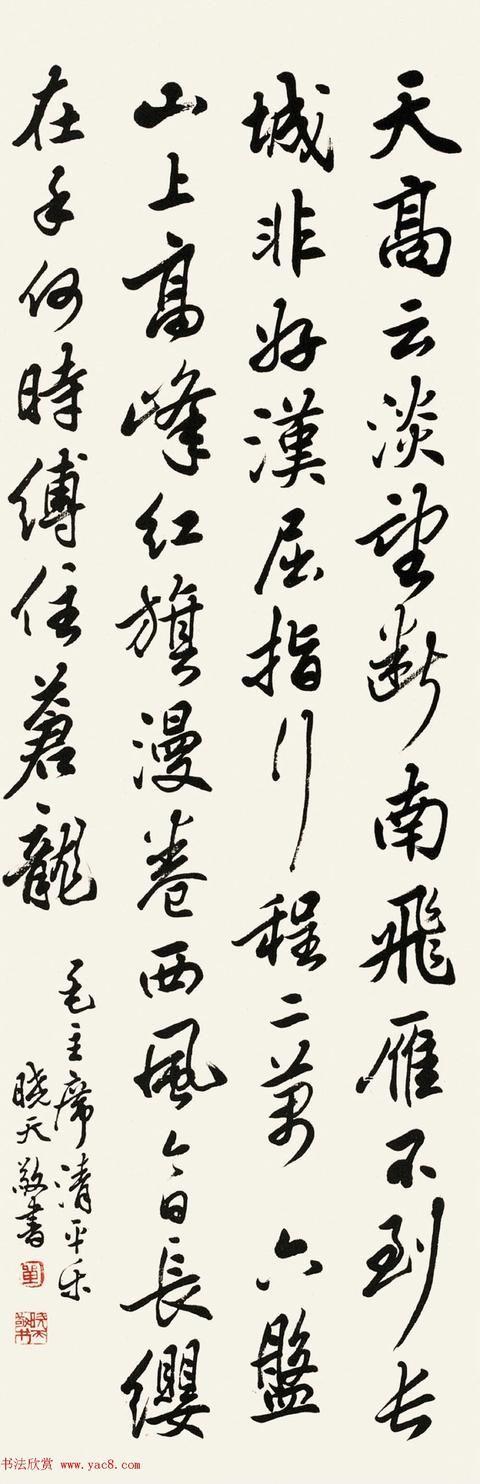 天高云淡望断南飛雁不到长
城非好漢屈指行程二萬 六盤
山上高峰红旗漫卷西風今日長纓
在手何時缚住蒼龍
毛主席清平乐
晓天敬書
书法欣赏 www.yac8.com